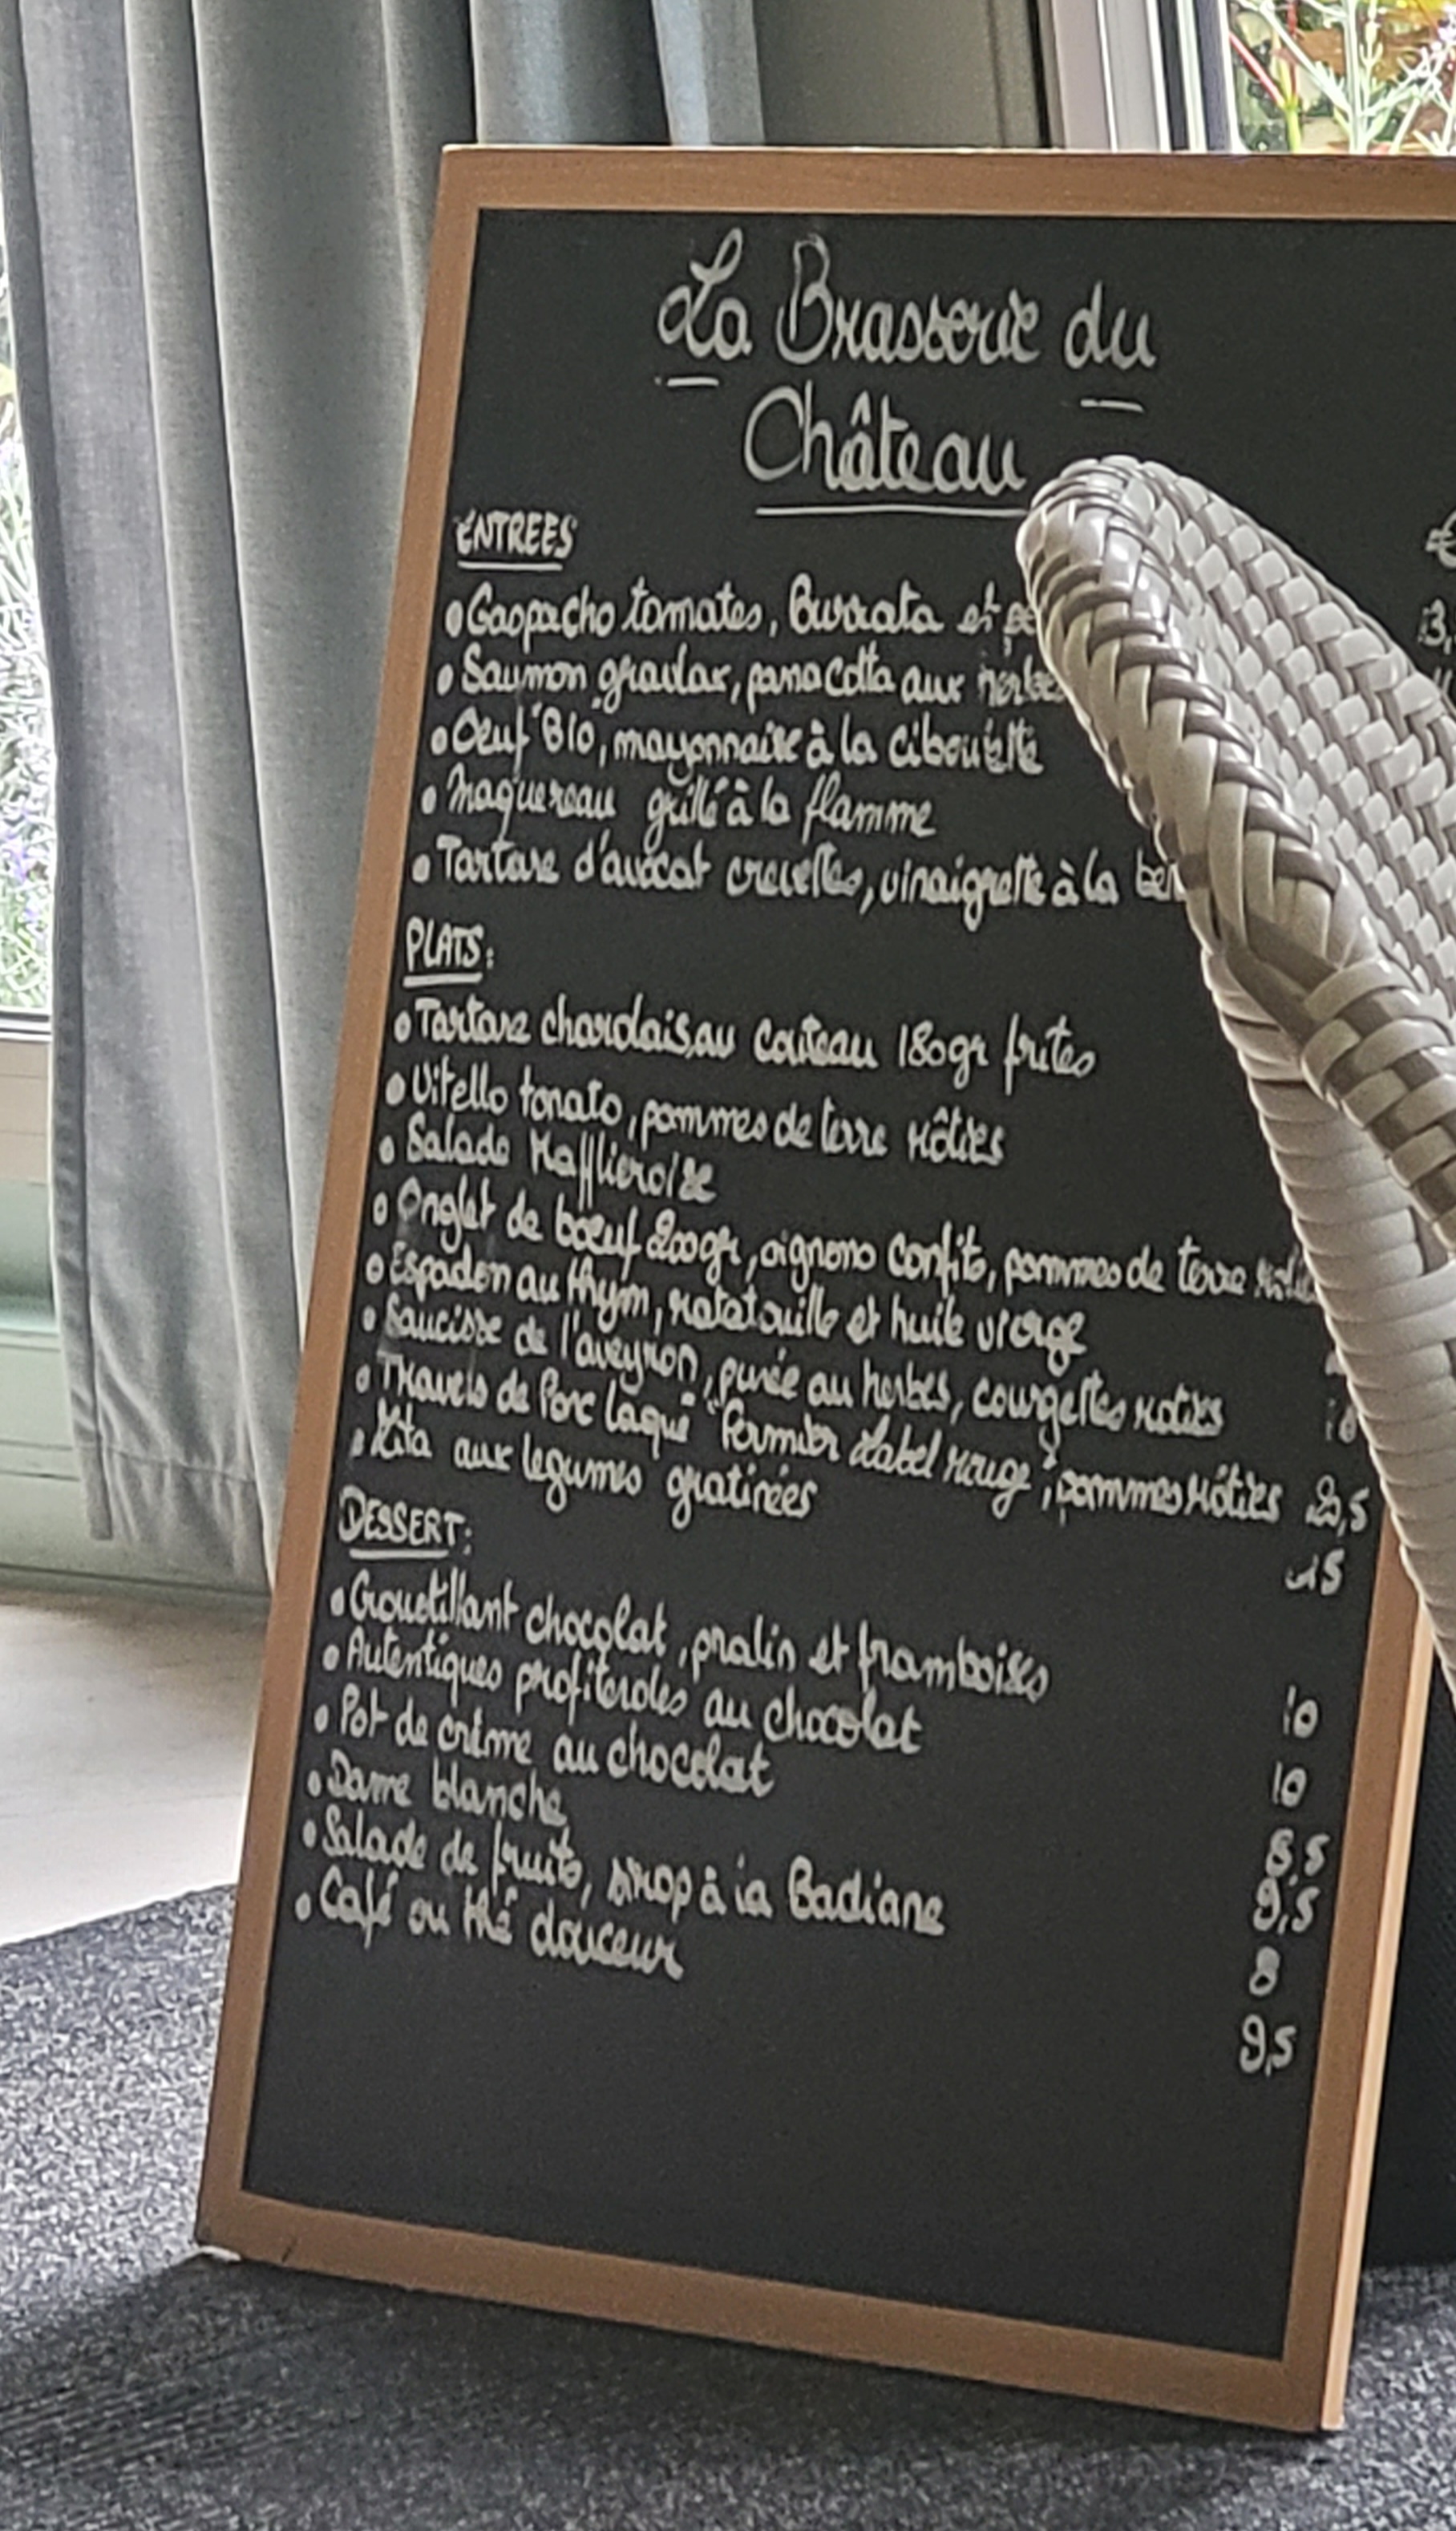 La Brasserie du
Château
ENTREES
• Gaspacho tomates, Burrata et
• Saumon gravlax, panacotta aux herbes
• Oeuf "Bio", mayonnaise à la ciboulette
• Maquereau grillé à la flamme
• Tartare d'avocat crevettes, vinaigrette à la
PLATS:
• Tartare charolais, au couteau 180gr frites
• Vitello tonato, pommes de terre rôties
• Salade Maffliéroise
• Onglet de boeuf 200gr, oignons confits, pommes de terre
• Espadon au thym, ratatouille et huile vierge
• Saucisse de l'aveyron, purée au herbes, courgettes roties
• Travers de Porc laqué "Fermier Label rouge", pommes rôties
• Pita aux legumes gratinées
DESSERT:
• Croustillant chocolat, pralin et framboises 10
• Autentiques profiteroles au chocolat 10
• Pot de crème au chocolat 8,5
• Dame blanche 9,5
• Salade de fruits, sirop à la Badiane 8
• Café ou thé douceur 9,5